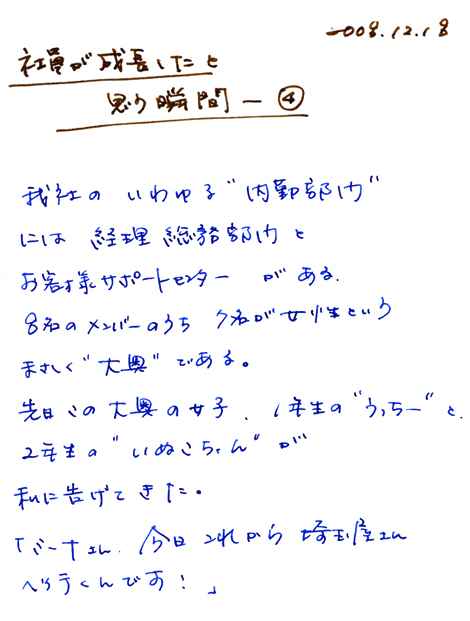 2008.12.18
社員が成長したと
思う瞬間ー④
我社の いわゆる"内勤部門"
には 経理総務部門と
お客様サポートセンター がある.
8名のメンバーのうち 7名が女性という
まさしく"大奥"である。
先日この大奥の女子、1年生の"うっちー"と、
2年生の"いぬこちゃん"が
私に告げてきた。
「バーナさん、今日これから 埼玉屋さん
へ行くんです!」